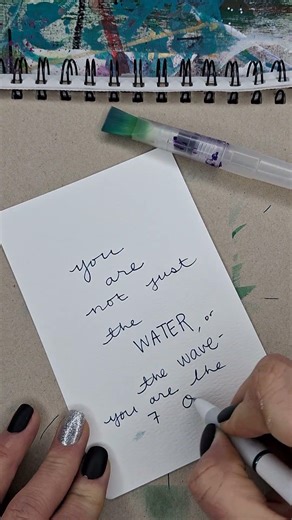 you
are
not just
the
WATER, or
the wave-
you are the
7 O